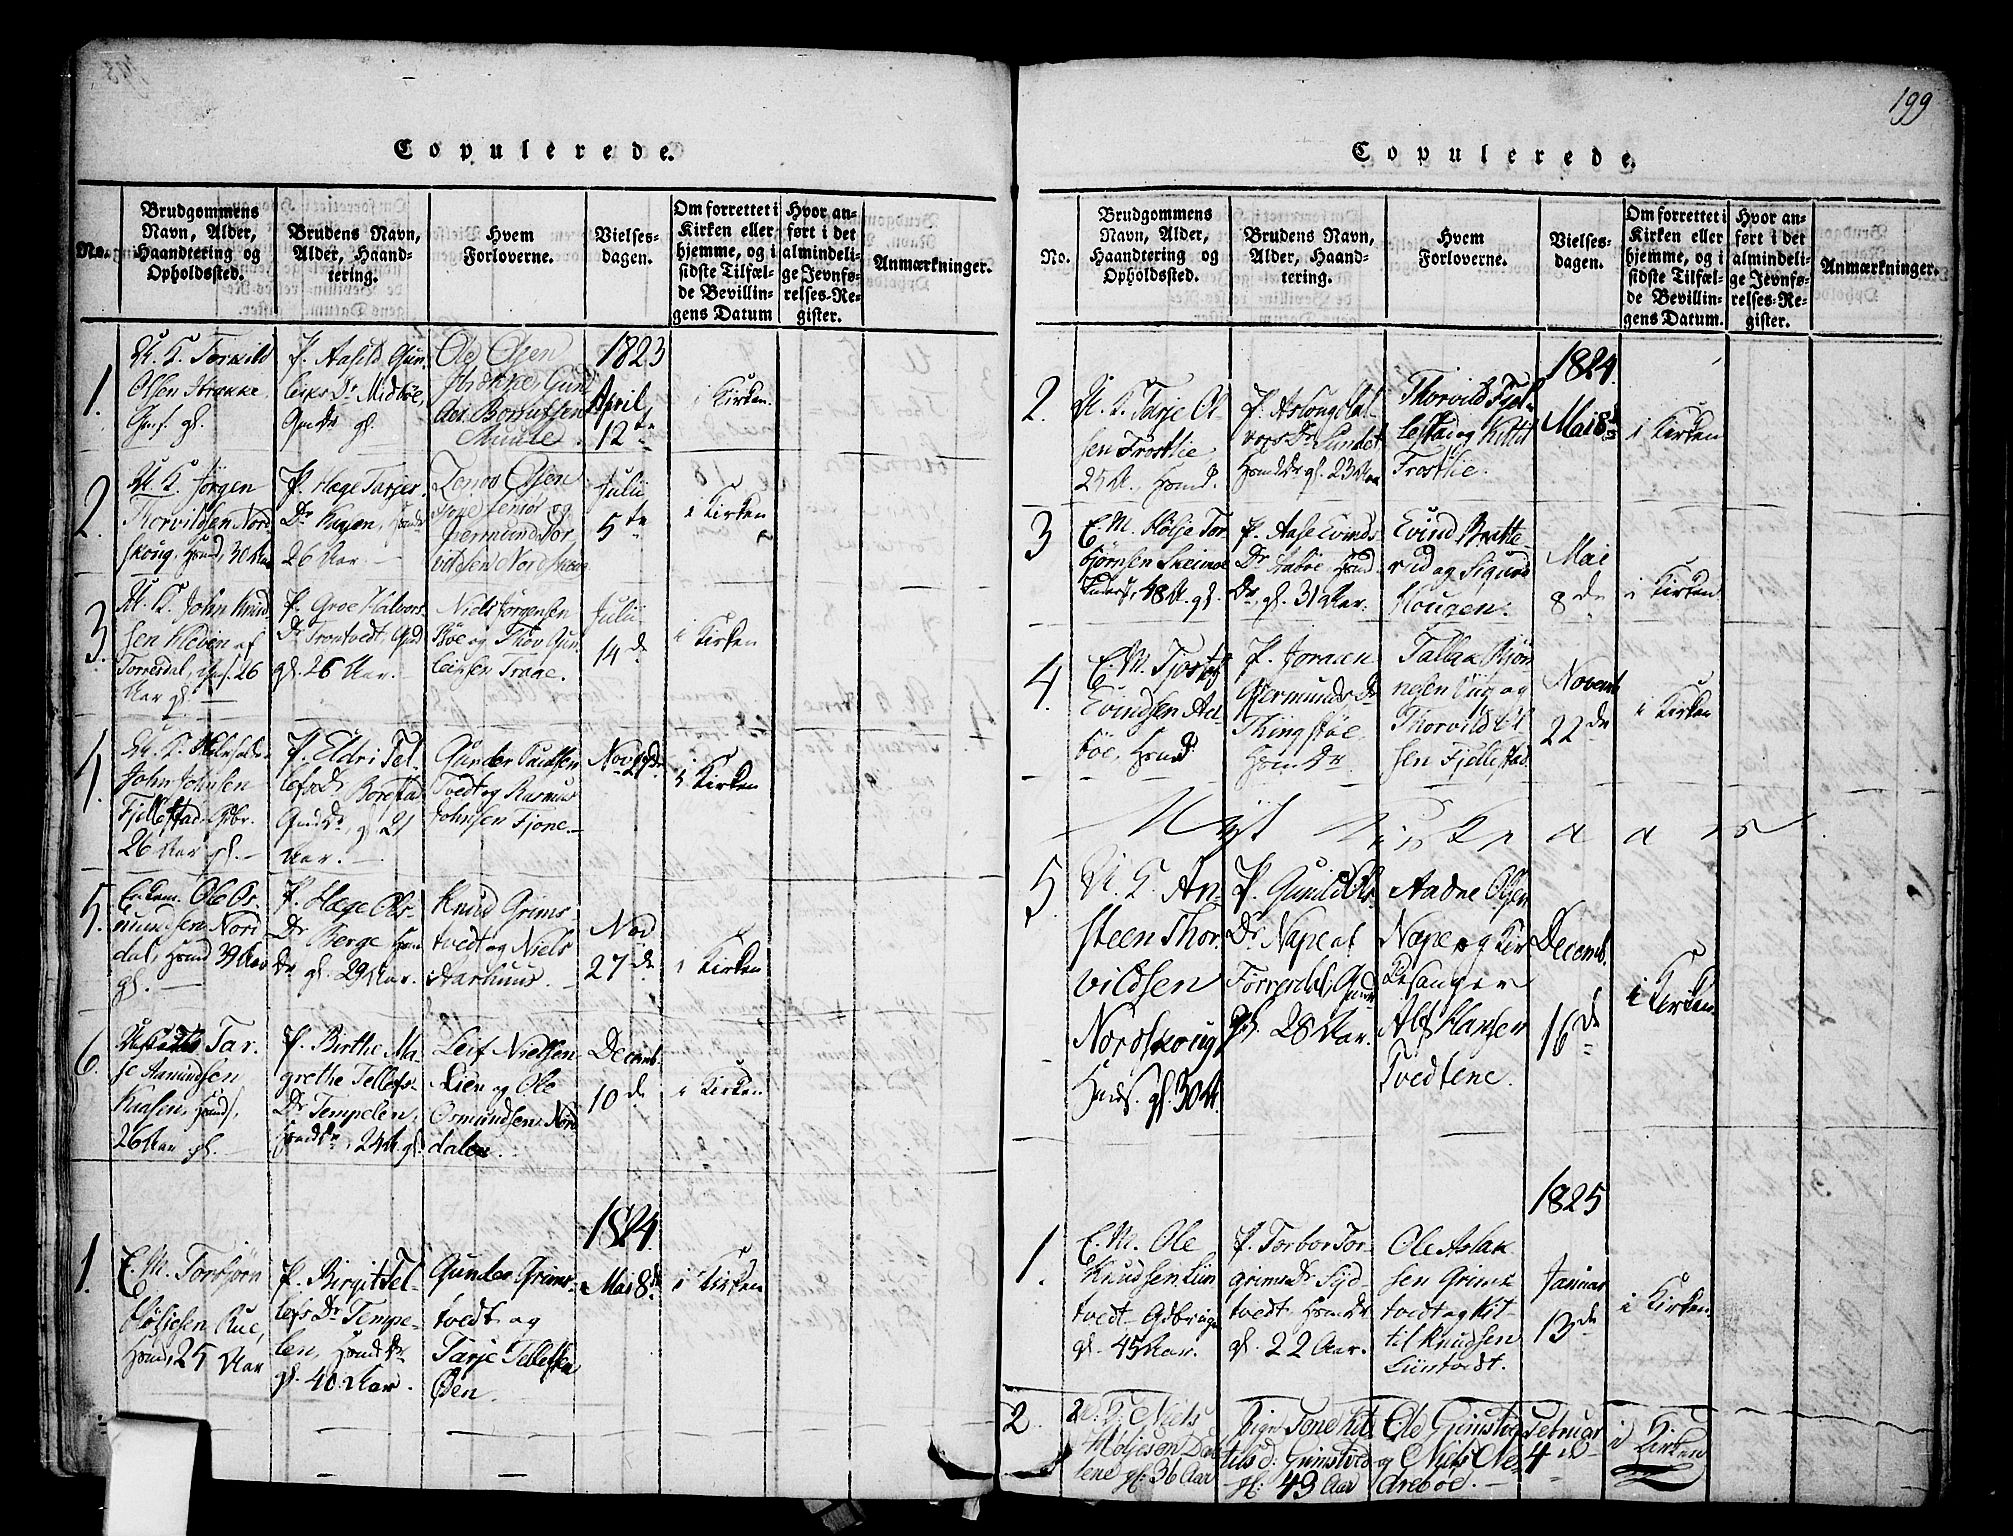 Copulerede.
No.
Brudgommens
Navn, Alder,
Haandtering og
Opholdssted.
Brudens Navn,
Alder, Haand-
tering.
Hvem
Forloverne.
Vielses-
dagen.
Om forrettet i
Kirken eller
hjemme, og i
sidste Tilfæl-
de Bevillin-
gens Datum
Hvor an-
ført i det
almindeli-
ge Jevnfø-
relses-Re-
gister.
Anmærkninger.
1.
U. K. Torkild
Olsen Strække
gl.
P. Aasild Gun-
leiks Dr. Midbøe,
gl.
Ole Olsen
Strække, Gun
Snuute
1823
April
12te
i Kirken.
2
U. K. Jørgen
Thorvildsen Nord-
skoug, Hsmd, 30 Aar
P. Hæge Tarjes
Dr. Kaasen,
26 Aar.
Olsen
og
Giermund Thor
vildsen Nordskoug
Julii
5te
i Kirken
3.
U. K. John Knud-
sen Kleven af
Torresdal, 26
Aar gl.
P. Groe Halvors
Dr. Trontvedt
gl. 26 Aar.
Niels Jørgensen
Bøe og Thov Gun-
leiksen Traae.
Julii
14de
i Kirken
4
John Johnsen
Fjellestad Gdbr.
26 Aar gl.
P. Eldri Tel-
lefs Dr. Borestad
gl. 21
Aar.
Gunder Knudsen
Tvedt og Rasmus
Johnsen Fjone.
Nov
i Kirken
5.
Enkem. Ole Os-
mundsen Nord-
dal, Hsmd 39 Aar
gl.
P. Hæge Ols
Dr. Berge
gl. 29 Aar.
Knud Grims-
tvedt og Niels
Aarhuus.
Nov
27de
i Kirken
6.
Tar-
je Aamundsen
Kaasen, Hsmd,
26 Aar gl.
P. Birthe Ma-
grethe Tellefs
Dr. Tempelen,
24 A. gl.
Leif Nielsen
Lien og Ole
Ormundsen Nord
dalen.
Decemb
10de
i Kirken
1824.
1.
E. M. Torbjørn
Høljesen Rue,
Hsmd, 25 Aar
P. Birgit Tel-
lefs Dr. Tempe-
len,
gl. 40 Aar.
Gunder Grims-
tvedt og
Tarje Tellefsen
Øen.
Mai 8de
i Kirken
199
Copulerede.
No.
Brudgommens
Navn, Alder,
Haandtering og
Opholdssted.
Brudens Navn,
Alder, Haand-
tering.
Hvem
Forloverne.
Vielses-
dagen.
Om forrettet i
Kirken eller
hjemme, og i
sidste Tilfæl-
de Bevillin-
gens Datum.
Hvor an-
ført i det
almindeli-
ge Jevnfø-
relses-Re-
gister.
Anmærkninger.
1824.
2.
U. K. Tarje Ol-
sen Frostlie
25 A. Hsmd.
P. Asloug Hal-
vors Dr. Sundet
gl. 23 Aar
Thorvild Fjel-
lestad og Kittil
Frostlie.
Mai 8de
i Kirken
3
E. M. Høljе Tor
bjørnsen Skeimoe
48 A. gl.
P. Aase Evinds
Dr. Haboe
Dr. gl. 31 Aar.
Evind Bratte-
rud og Sigurd
Hougen.
Mai
8de
i Kirken
4.
E. M. Tjostolf
Evindsen
bøe, Hsmd
P. Joraen
Giermunds Dr.
Tningsbøe
Tallak Bjøn
nesen og
Thorvild Ol
sen Fjellestad
Novemb
22de
i Kirken
Nyt Kirke aar
5
U. K. An-
steen Thor
vildsen
Nordskoug
gl. 30 A.
P. Gunild Ols
Dr. Nape af
Torresdal,
gl. 28 Aar.
Aadne Olsen
Nape og Kir
kesanger
Alf Hansen
Tvedtene.
Decemb.
16de
i Kirken
1825
1.
E. M. Ole
Knudsen Lun
tvedt Gdbruger
gl. 45 Aar.
P. Torbor Tor-
grims Dr. Syd
tvedt
gl. 22 Aar.
Ole Aslak
sen Grims
tvedt og Kit-
til Knudsen
Luntvedt.
Januar
13de
i Kirken.
2.
Niels
Høljesen Dal
lene gl. 36 Aar
Pige Tone Kit
tils d. Grimstved
gl. 49 Aar
Ole Grimstved
og Niels Ne-
drebøe.
Februar
4de
i Kirken